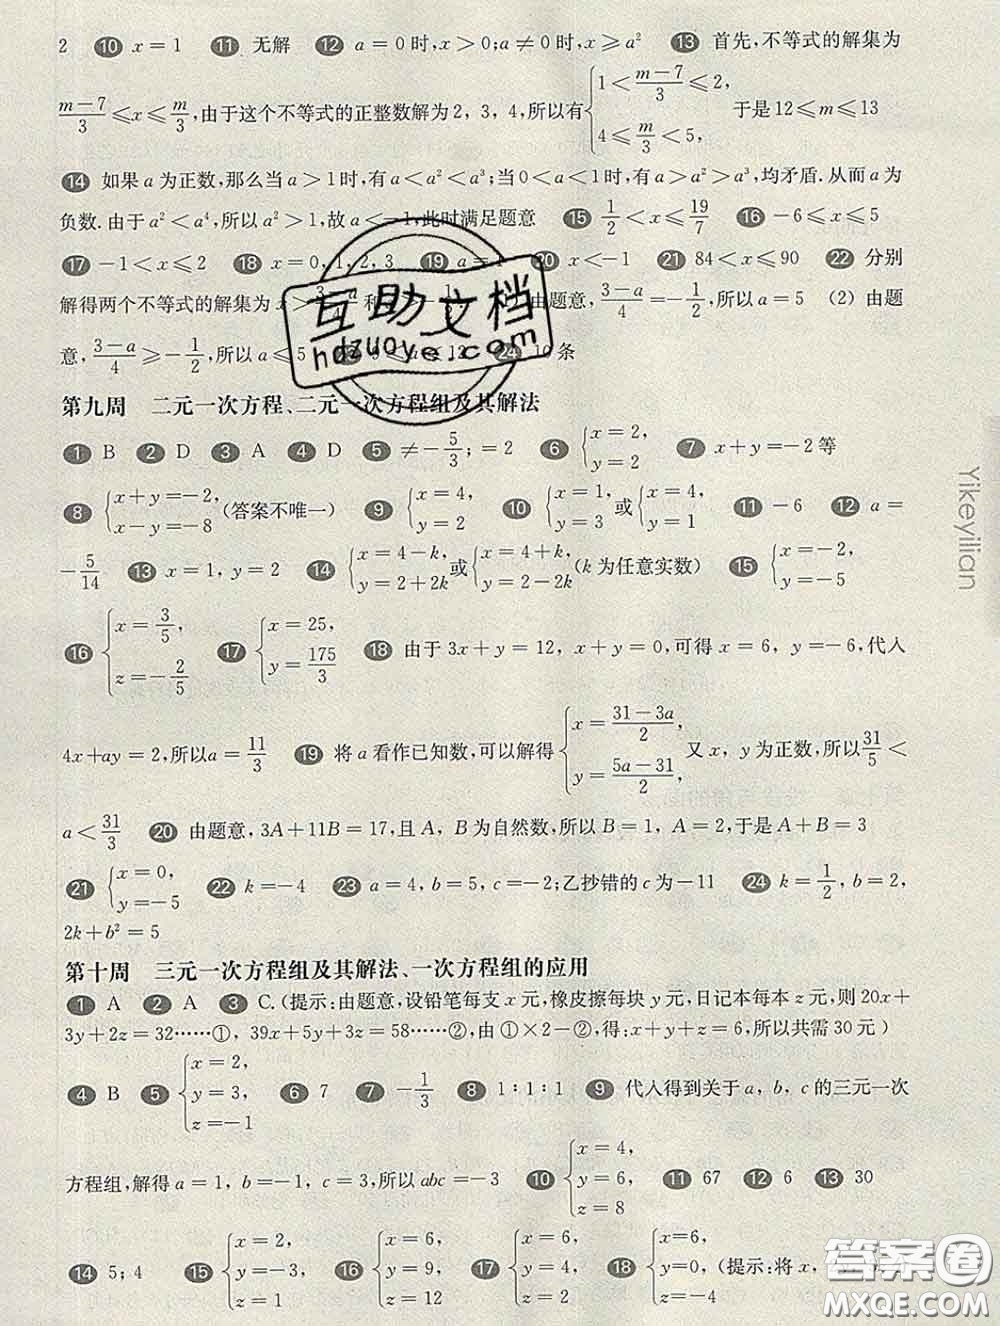 2 ⑩ x=1 ⑪ 无解 ⑫ a=0时,x>0;a≠0时,x≥a² ⑬ 首先,不等式的解集为
(m-7)/3≤x≤m/3,由于这个不等式的正整数解为2, 3, 4,所以有{1<(m-7)/3≤2, 4≤m/3<5, 于是12≤m≤13
⑭ 如果a为正数,那么当a>1时,有a<a²<a³;当0<a<1时,有a>a²>a³,均矛盾.从而a为
负数.由于a²<a⁴,所以a²>1,故a<-1,此时满足题意 ⑮ 1/2<x≤19/7 ⑯ -6≤x≤5
⑰ -1<x≤2 ⑱ x=0, 1, 2, 3 ⑲ a=1 ⑳ x<-1 ㉑ 84<x≤90 ㉒ 分别
解得两个不等式的解集为 由题意,(3-a)/4=-1/2,所以a=5 (2) 由题
意,(3-a)/4≥-1/2,所以a≤5 ㉔ 10条
第九周 二元一次方程、二元一次方程组及其解法
① B ② D ③ A ④ D ⑤ ≠-5/3; =2 ⑥ {x=2, y=2 ⑦ x+y=-2等
⑧ {x+y=-2, x-y=-8 (答案不唯一) ⑨ {x=4, y=2 ⑩ {x=1, y=3 或 {x=4, y=1 ⑪ -6 ⑫ a=
-5/14 ⑬ x=1, y=2 ⑭ {x=4-k, y=2+2k 或 {x=4+k, y=2-2k (k为任意实数) ⑮ {x=-2, y=-5
⑯ {x=3/5, z=-2/5 ⑰ {x=25, y=175/3 ⑱ 由于3x+y=12, x+y=0,可得x=6, y=-6,代入
4x+ay=2,所以a=11/3 ⑲ 将a看作已知数,可以解得{x=(31-3a)/2, y=(5a-31)/2, 又x, y为正数,所以31/5<
a<31/3 ⑳ 由题意, 3A+11B=17,且A, B为自然数,所以B=1, A=2,于是A+B=3
㉑ {x=0, y=-5 ㉒ k=-4 ㉓ a=4, b=5, c=-2;乙抄错的c为-11 ㉔ k=1/2, b=2,
2k+b²=5
第十周 三元一次方程组及其解法、一次方程组的应用
① A ② A ③ C.(提示:由题意,设铅笔每支x元,橡皮擦每块y元,日记本每本z元,则20x+
3y+2z=32……①, 39x+5y+3z=58……②,由①×2-②,得:x+y+z=6,所以共需30元)
④ B ⑤ {x=2, y=3, z=-1 ⑥ 7 ⑦ -1/3 ⑧ 1:1:1 ⑨ 代入得到关于a, b, c的三元一次
方程组,解得a=1, b=-1, c=3,所以abc=-3 ⑩ {x=4, y=6, z=8 ⑪ 67 ⑫ 6 ⑬ 30
⑭ 5; 4 ⑮ {x=2, y=-3, z=1 ⑯ {x=6, y=9, z=12 ⑰ {x=6, y=4, z=2 ⑱ {x=6, y=0, z=-4 (提示:将x,
Yikeyilian
互助文档
hdzuoye.com
答案圈
MXQE.COM